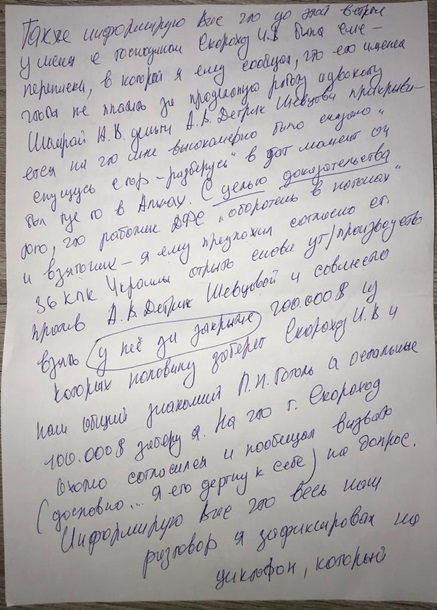 Также информирую Вас что до этой встречи
у меня с господином Скороход И.В была СМС-
переписка, в которой я ему сообщал, что его именем
чтобы не платить за проделанную работу адвокату
Шамрай Н.В. деньги А.В Детрик Шевцова прикрыва-
ется на что мне высокомерно было сказано „
спущусь с гор - разберусь" в тот момент он
был где то в Альпах. С целью доказательства
того, что работник ДФС „оборотень в погонах"
и взяточник - я ему предложил согласно ст.
36 КПК Украины открыть снова уг/производство
против А.В. Детрик Шевцовой и совместно
взять у неё за закрытие 200.000$ из
которых половину заберет Скороход И.В и
наш общий знакомый П.Н. Гоголь а остальные
100.000$ заберу я. На что г. Скороход
охотно согласился и пообещал вызвать
(дословно... Я его дерну к себе) на допрос.
Информирую Вас что весь наш
разговор я зафиксировал на
диктофон, который